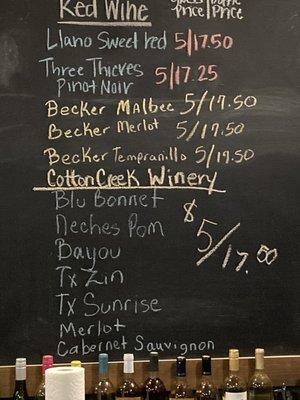 Red Wine
price/Price
Llano Sweet red 5/17.50
Three Thieves 5/17.25
Pinot Noir
Becker Malbec 5/17.50
Becker Merlot 5/17.50
Becker Tempranillo 5/17.50
Cotton Creek Winery
Blu Bonnet
Neches Pom
Bayou
Tx Zin
Tx Sunrise
Merlot
Cabernet Sauvignon
$5/17.50